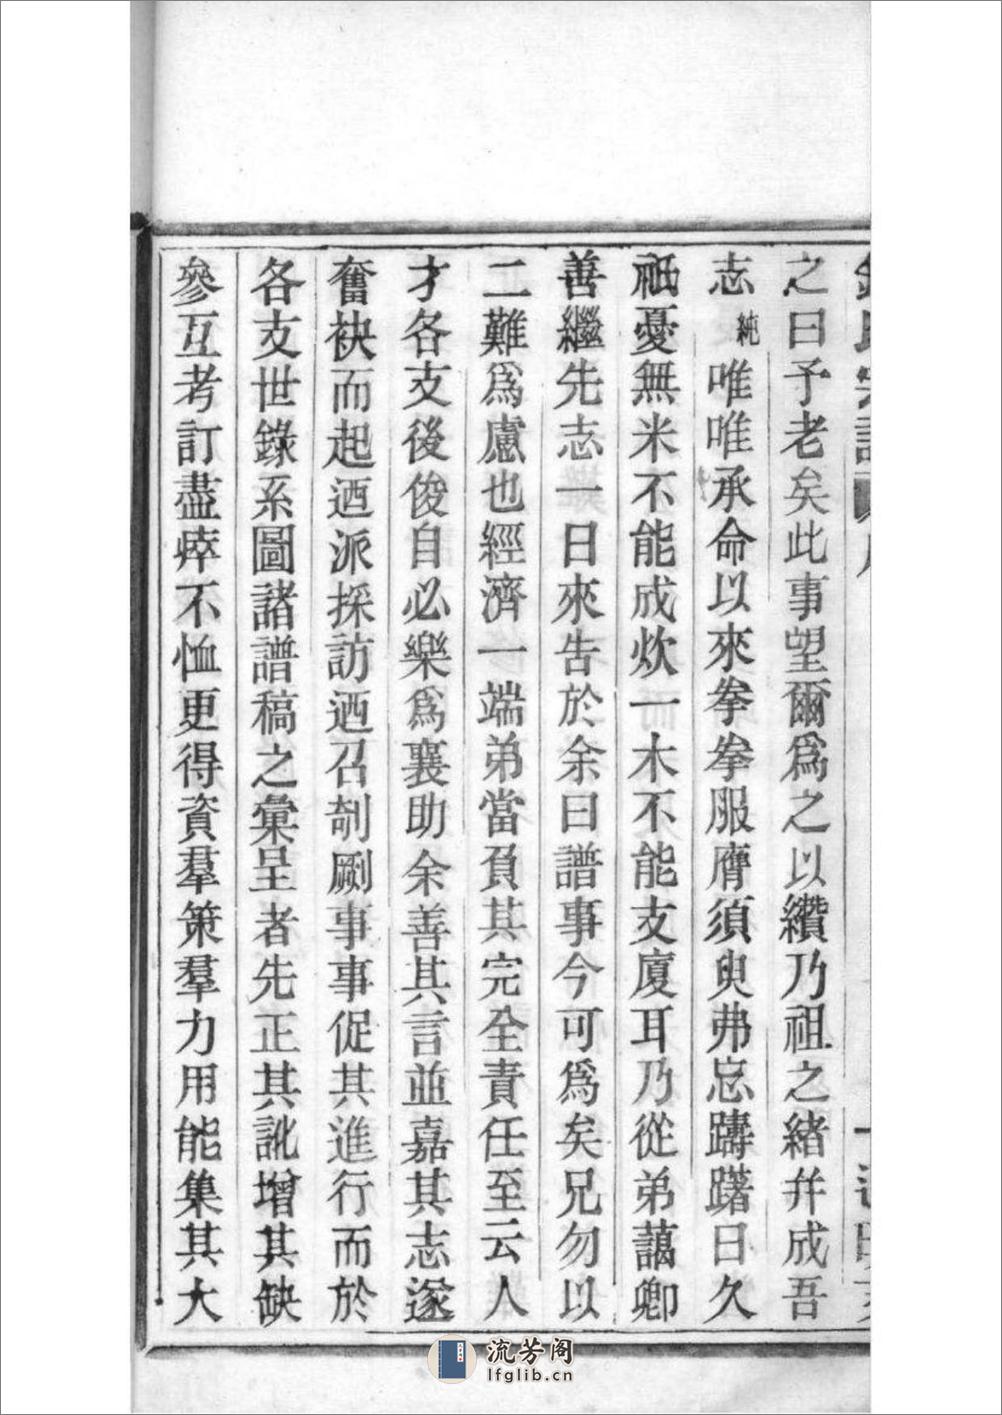 之曰予老矣此事望爾爲之以纘乃祖之緒幷成吾
志純唯唯承命以來拳拳服膺須臾弗忘躊躇日久
祇憂無米不能成炊一木不能支廈耳乃從弟藹卿
善繼先志一日來告於余曰譜事今可爲矣兄勿以
二難爲慮也經濟一端弟當負其完全責任至云人
才各支後俊自必樂爲襄助余善其言並嘉其志遂
奮袂而起迺派採訪迺召剞劂事事促其進行而於
各支世錄系圖諸譜稿之彙呈者先正其訛增其缺
參互考訂盡瘁不恤更得資羣策羣力用能集其大
流芳阁
lfglib.cn